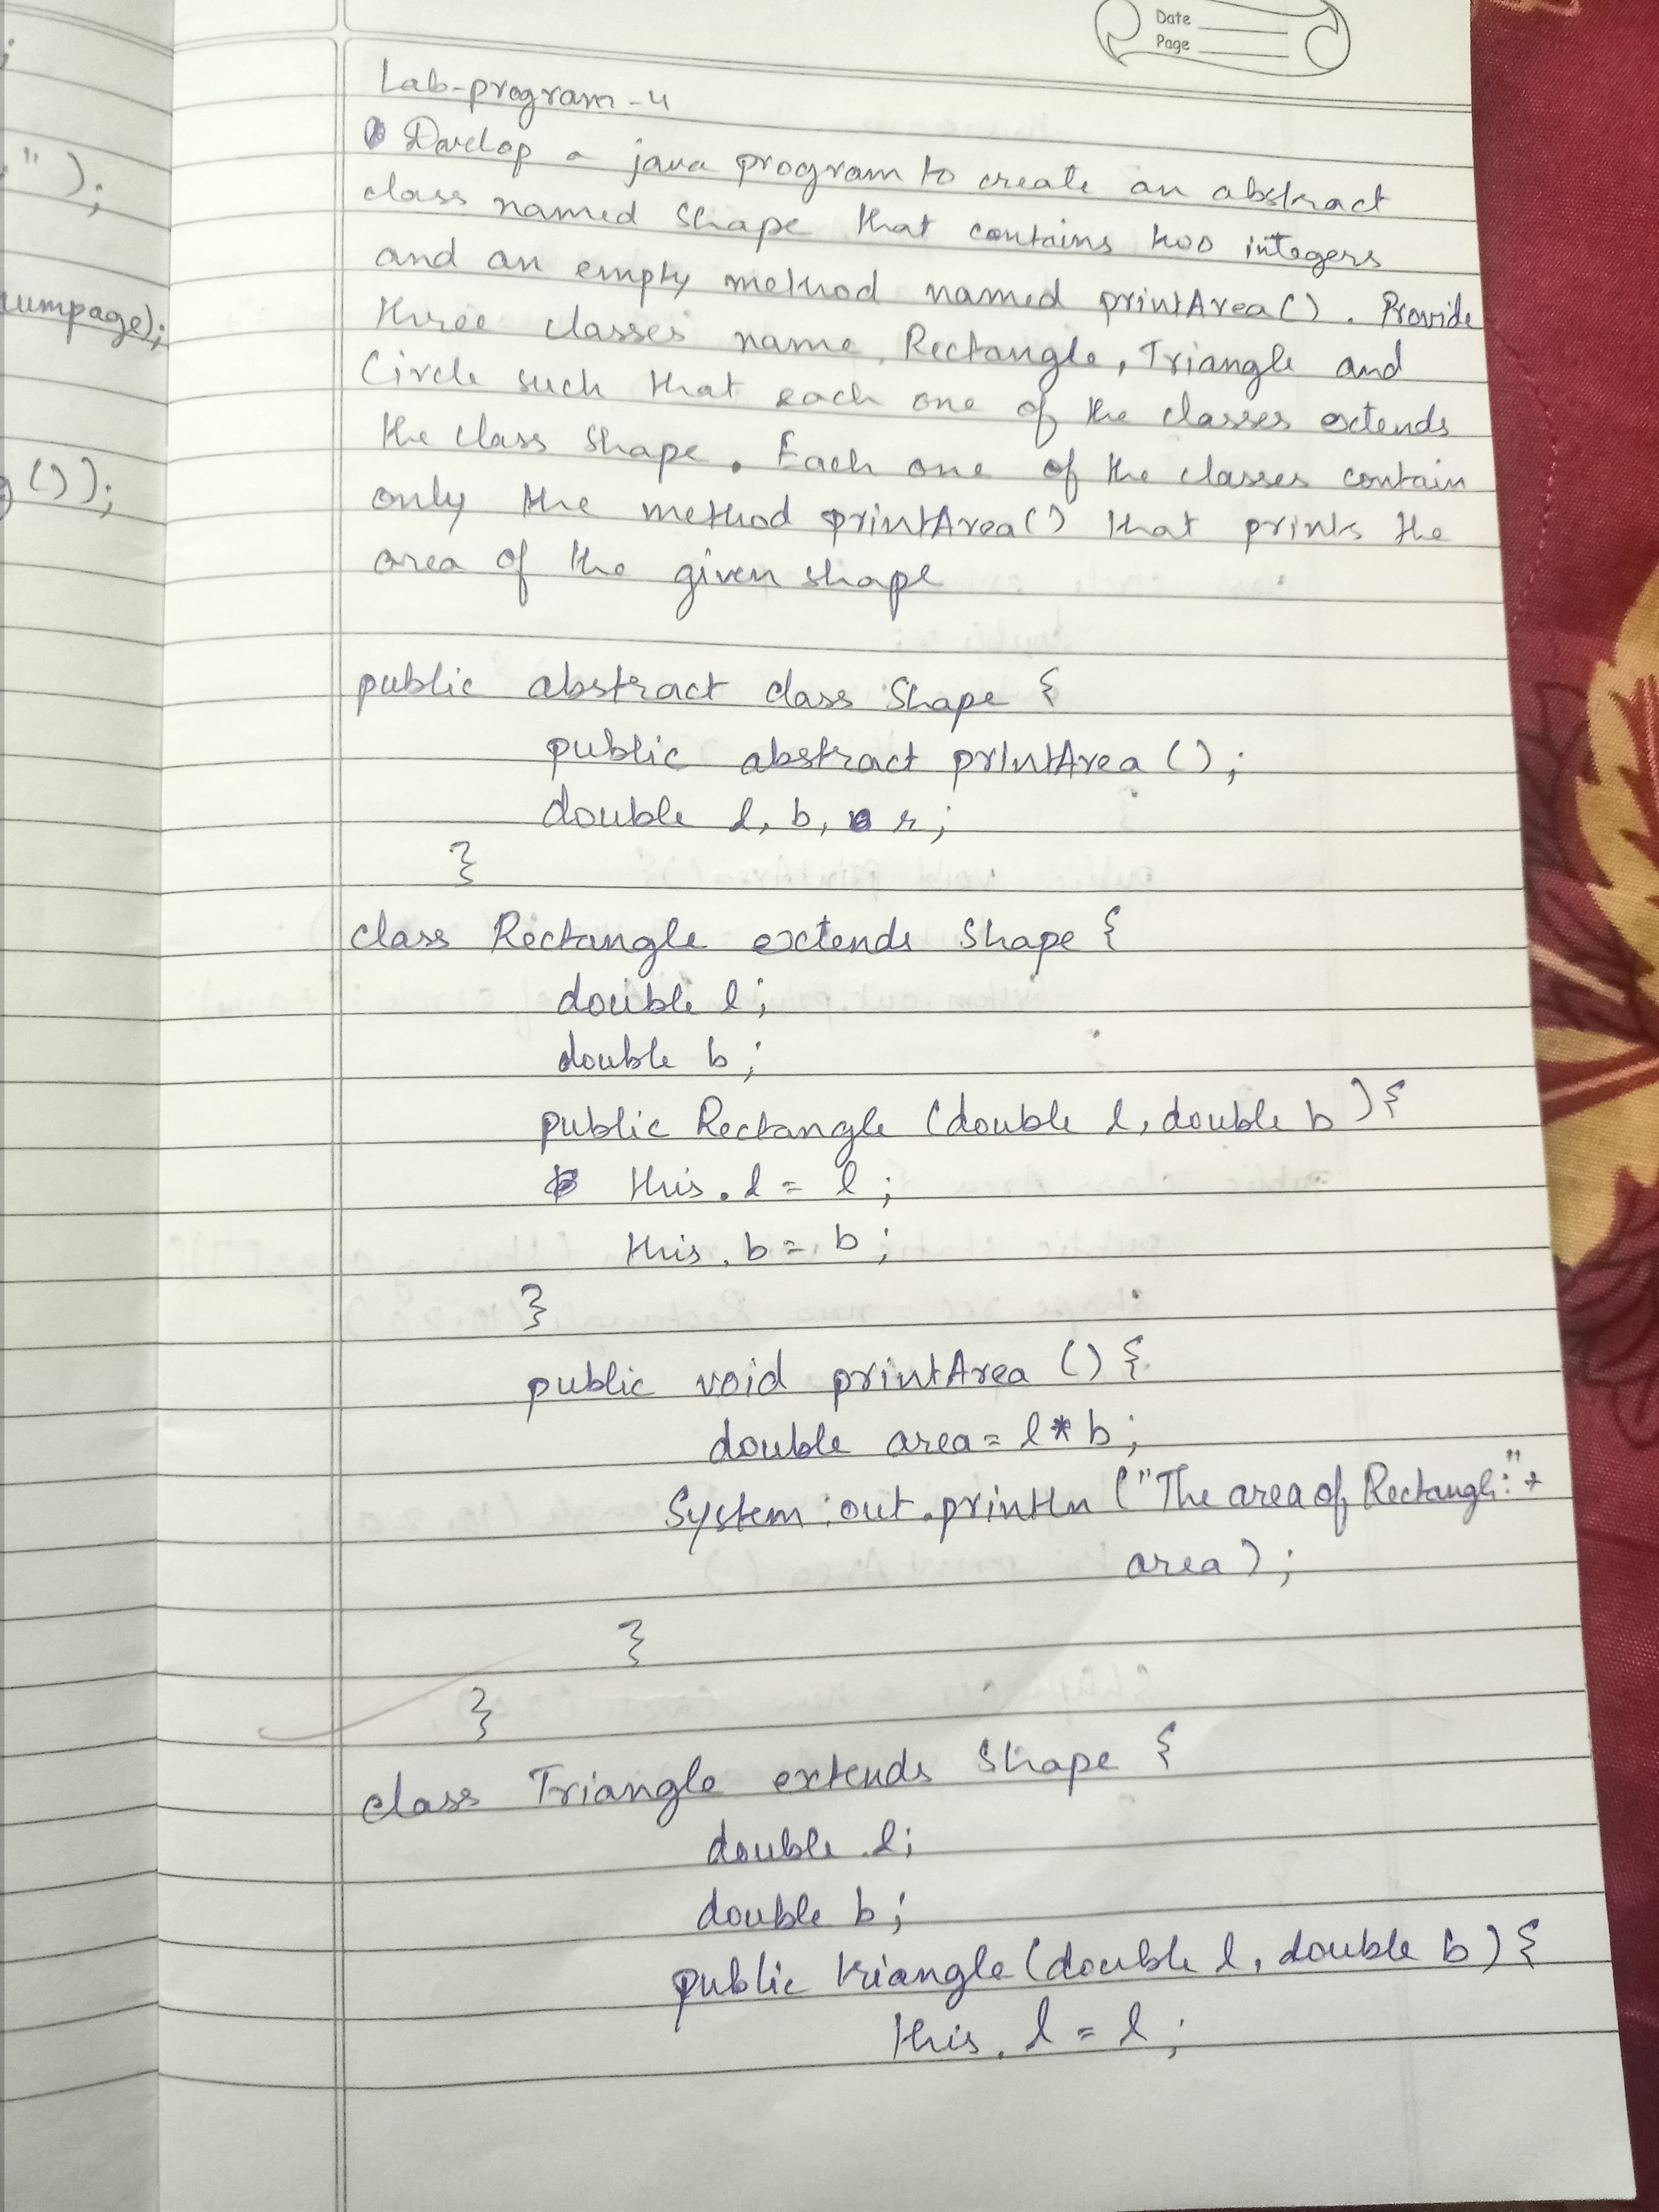 Date
Page
;
:");
numpage);
g());
Lab-program-4
Develop a java program to create an abstract
class named Shape that contains two integers
and an empty method named printArea(). Provide
three classes name, Rectangle, Triangle and
Circle such that each one of the classes extends
the class Shape. Each one of the classes contain
only the method printArea() that prints the
area of the given shape
public abstract class Shape {
public abstract printArea();
double l, b, r;
}
class Rectangle extends Shape {
double l;
double b;
public Rectangle (double l, double b){
this.l = l;
this.b = b;
}
public void printArea () {
double area = l * b;
System.out.println ("The area of Rectangle:" +
area);
}
}
class Triangle extends Shape {
double l;
double b;
public triangle (double l, double b) {
this.l = l;